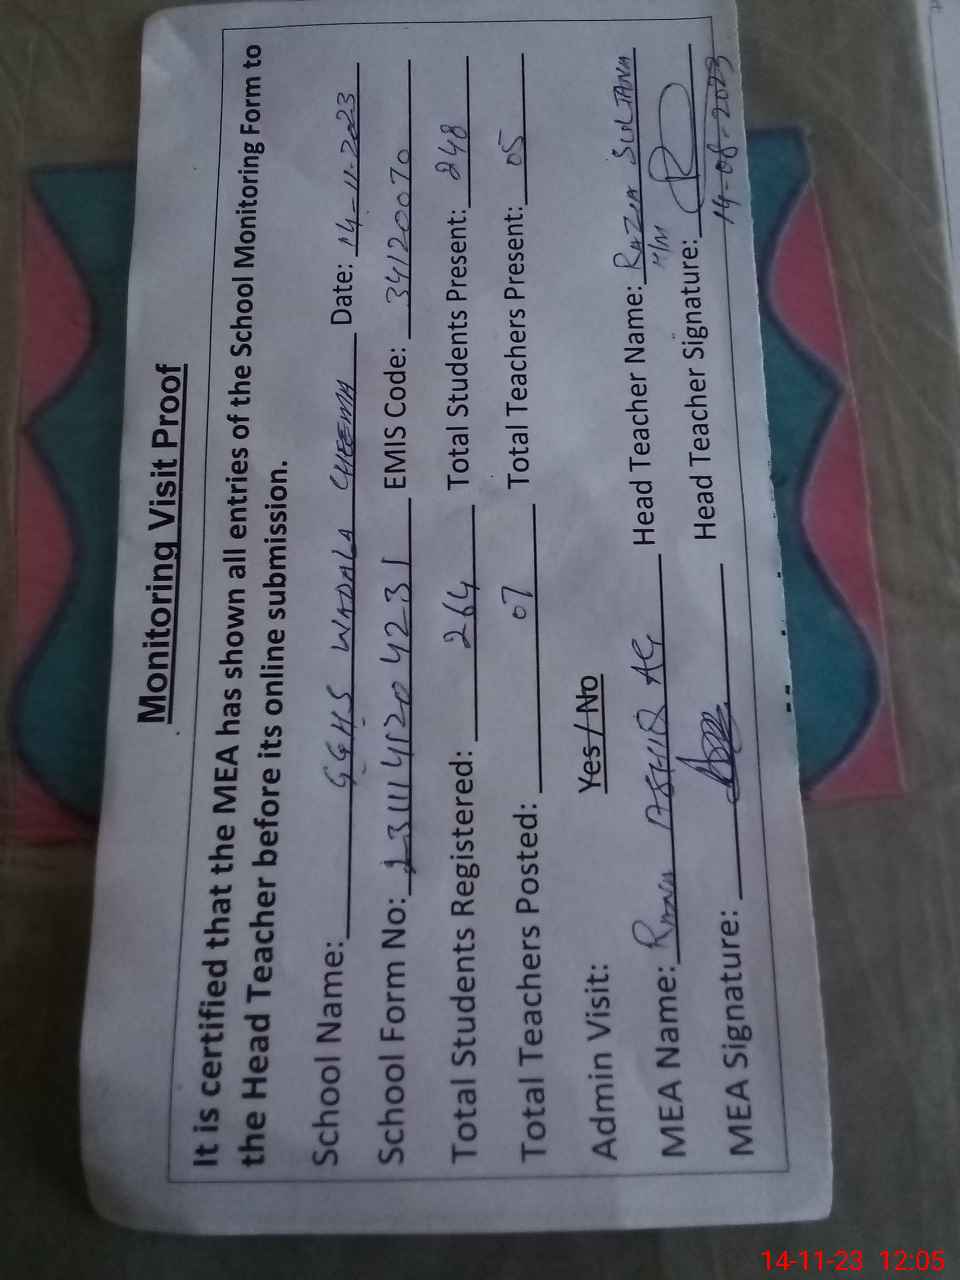 Monitoring Visit Proof
It is certified that the MEA has shown all entries of the School Monitoring Form to
the Head Teacher before its online submission.
School Name: GGHS WADALA CHEEMA Date: 14-11-2023
School Form No: 231114120 4231 EMIS Code: 34120070
Total Students Registered: 264 Total Students Present: 248
Total Teachers Posted: 07 Total Teachers Present: 05
Admin Visit: Yes / No
MEA Name: Rana ASHIQ Head Teacher Name: RAZIA SULTANA
H/M
MEA Signature: Head Teacher Signature:
14-08-2023
14-11-23 12:05